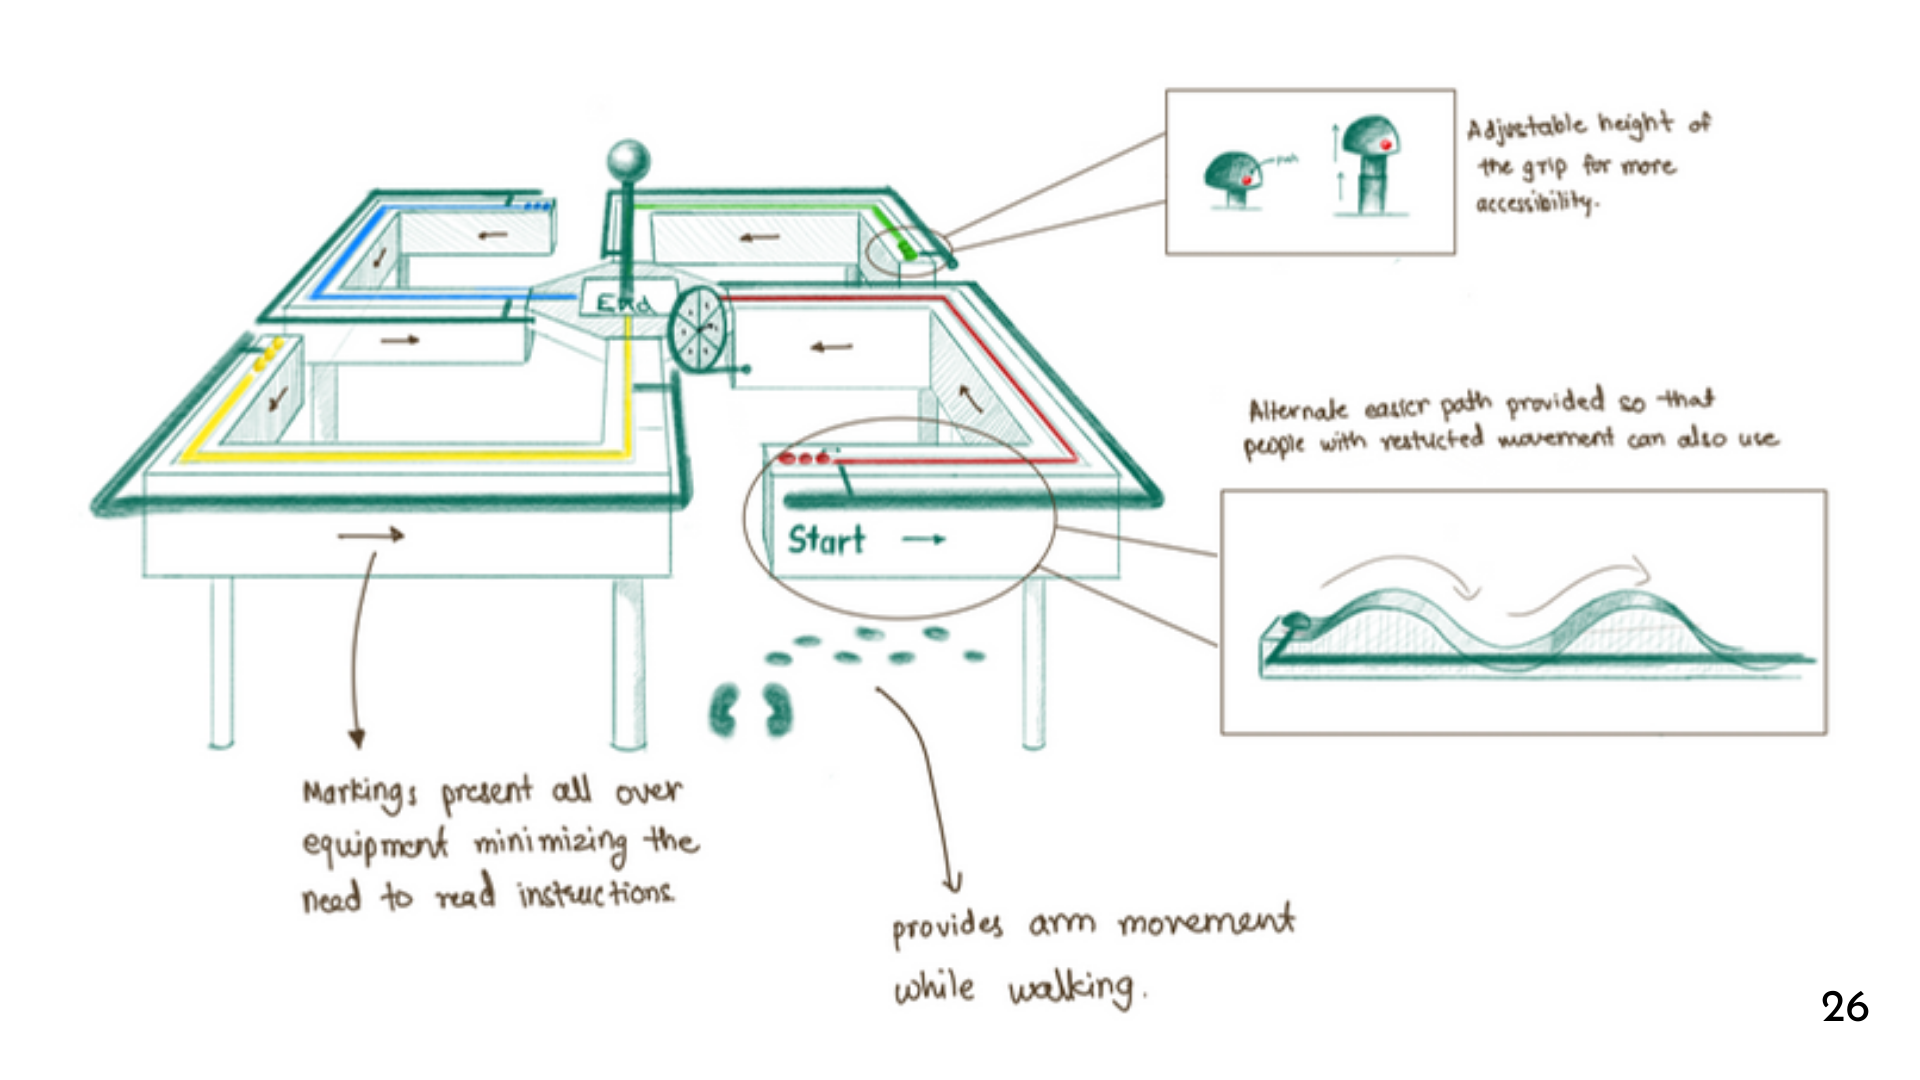 Adjustable height of
the grip for more
accessibility.
push
End
Alternate easier path provided so that
people with restricted movement can also use
Start
Markings present all over
equipment minimizing the
need to read instructions
provides arm movement
while walking.
26